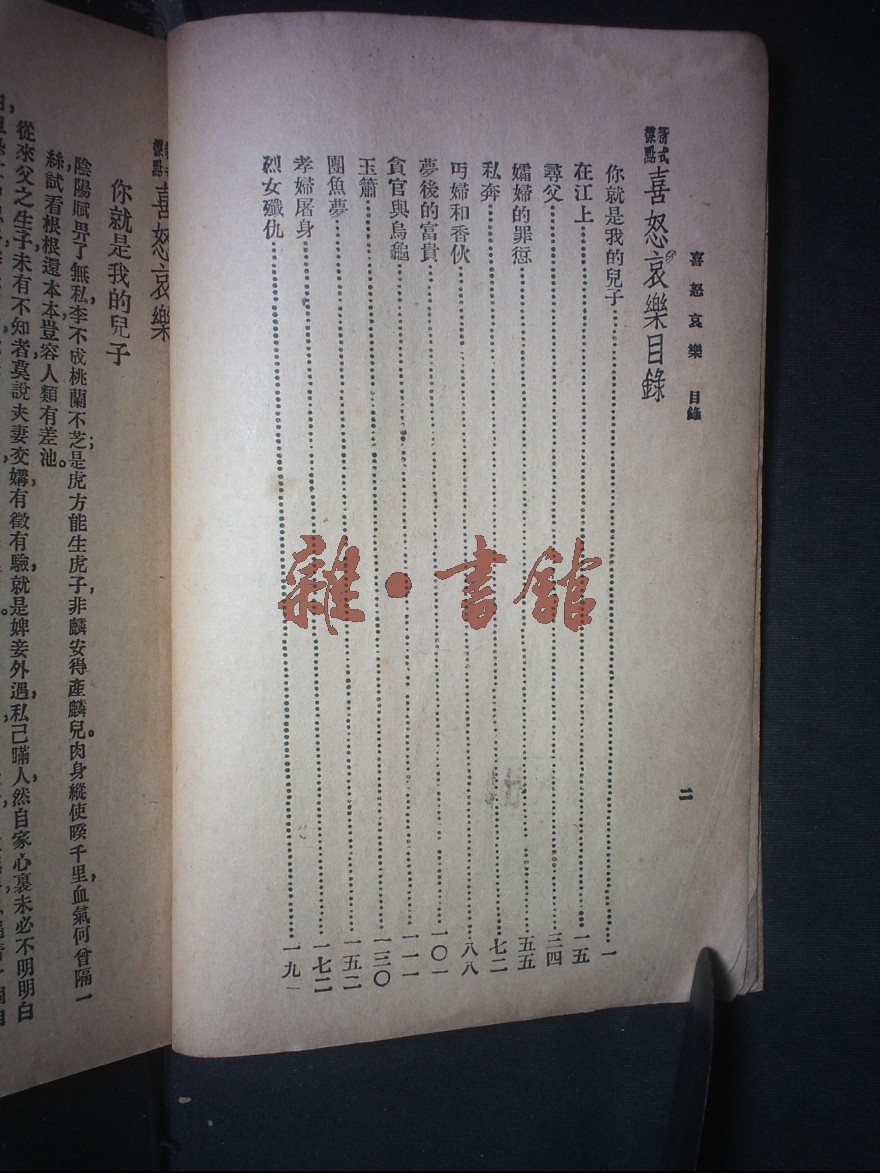 喜怒哀樂 目錄
二
新式標點 喜怒哀樂目錄
你就是我的兒子……一
在江上……一五
尋父……三四
孀婦的罪愆……五五
私奔……七二
丐婦和香伙……八八
夢後的富貴……一〇一
貪官與烏龜……一一一
玉簫……一三〇
團魚夢……一五二
孝婦屠身……一七二
烈女殲仇……一九一
雜·書館
標點 喜怒哀樂
你就是我的兒子
陰陽賦畀了無私,李不成桃蘭不芝;是虎方能生虎子,非麟安得產麟兒。肉身縱使暌千里,血氣何曾隔一
絲,試看根根還本本,豈容人類有差池。
從來父之生子,未有不知者,莫說夫妻交媾,有徵有驗,就是婢妾外遇,私己瞞人,然自家心裏,未必不明明白